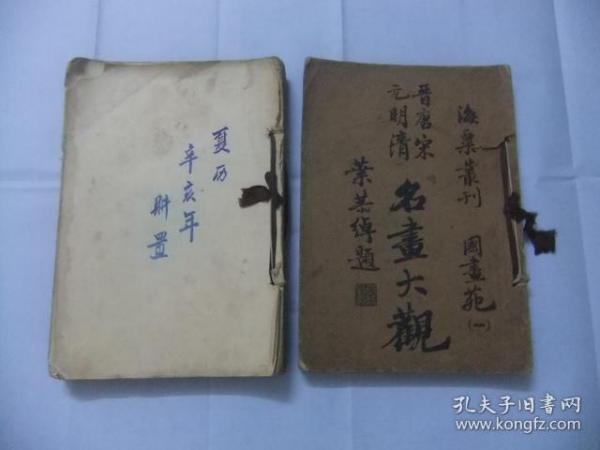 夏历
辛亥年
购置
海粟叢刊 國畫苑(一)
晋唐宋
元明清
名畫大觀
葉恭綽題
孔夫子旧书网
www.kongfz.com